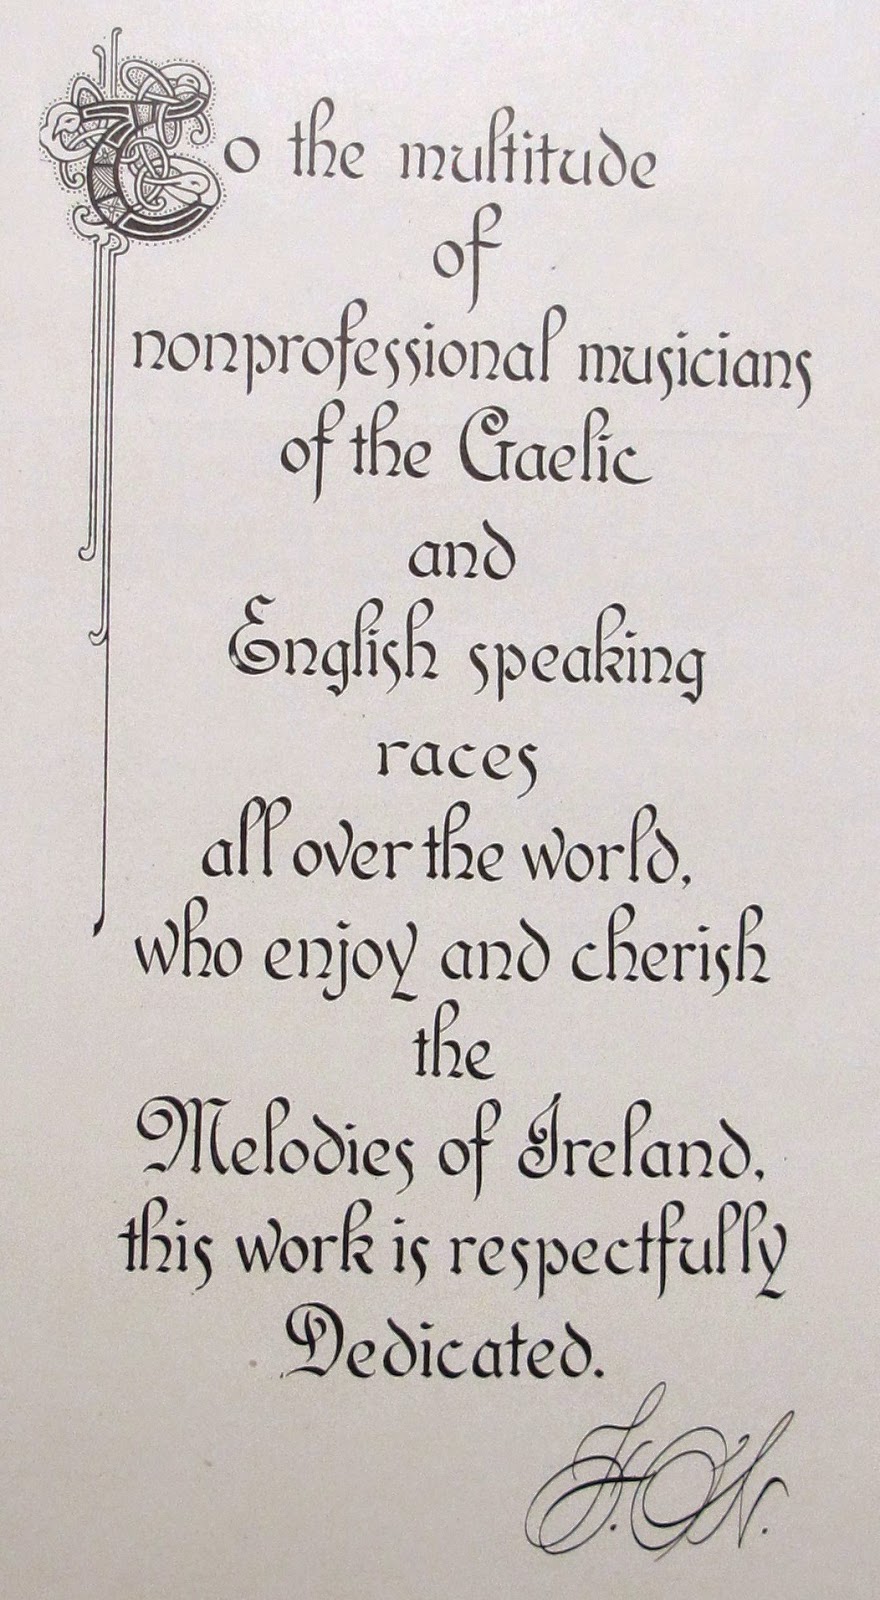 To the multitude
of
nonprofessional musicians
of the Gaelic
and
English speaking
races
all over the world,
who enjoy and cherish
the
Melodies of Ireland,
this work is respectfully
Dedicated.
F. O'N.